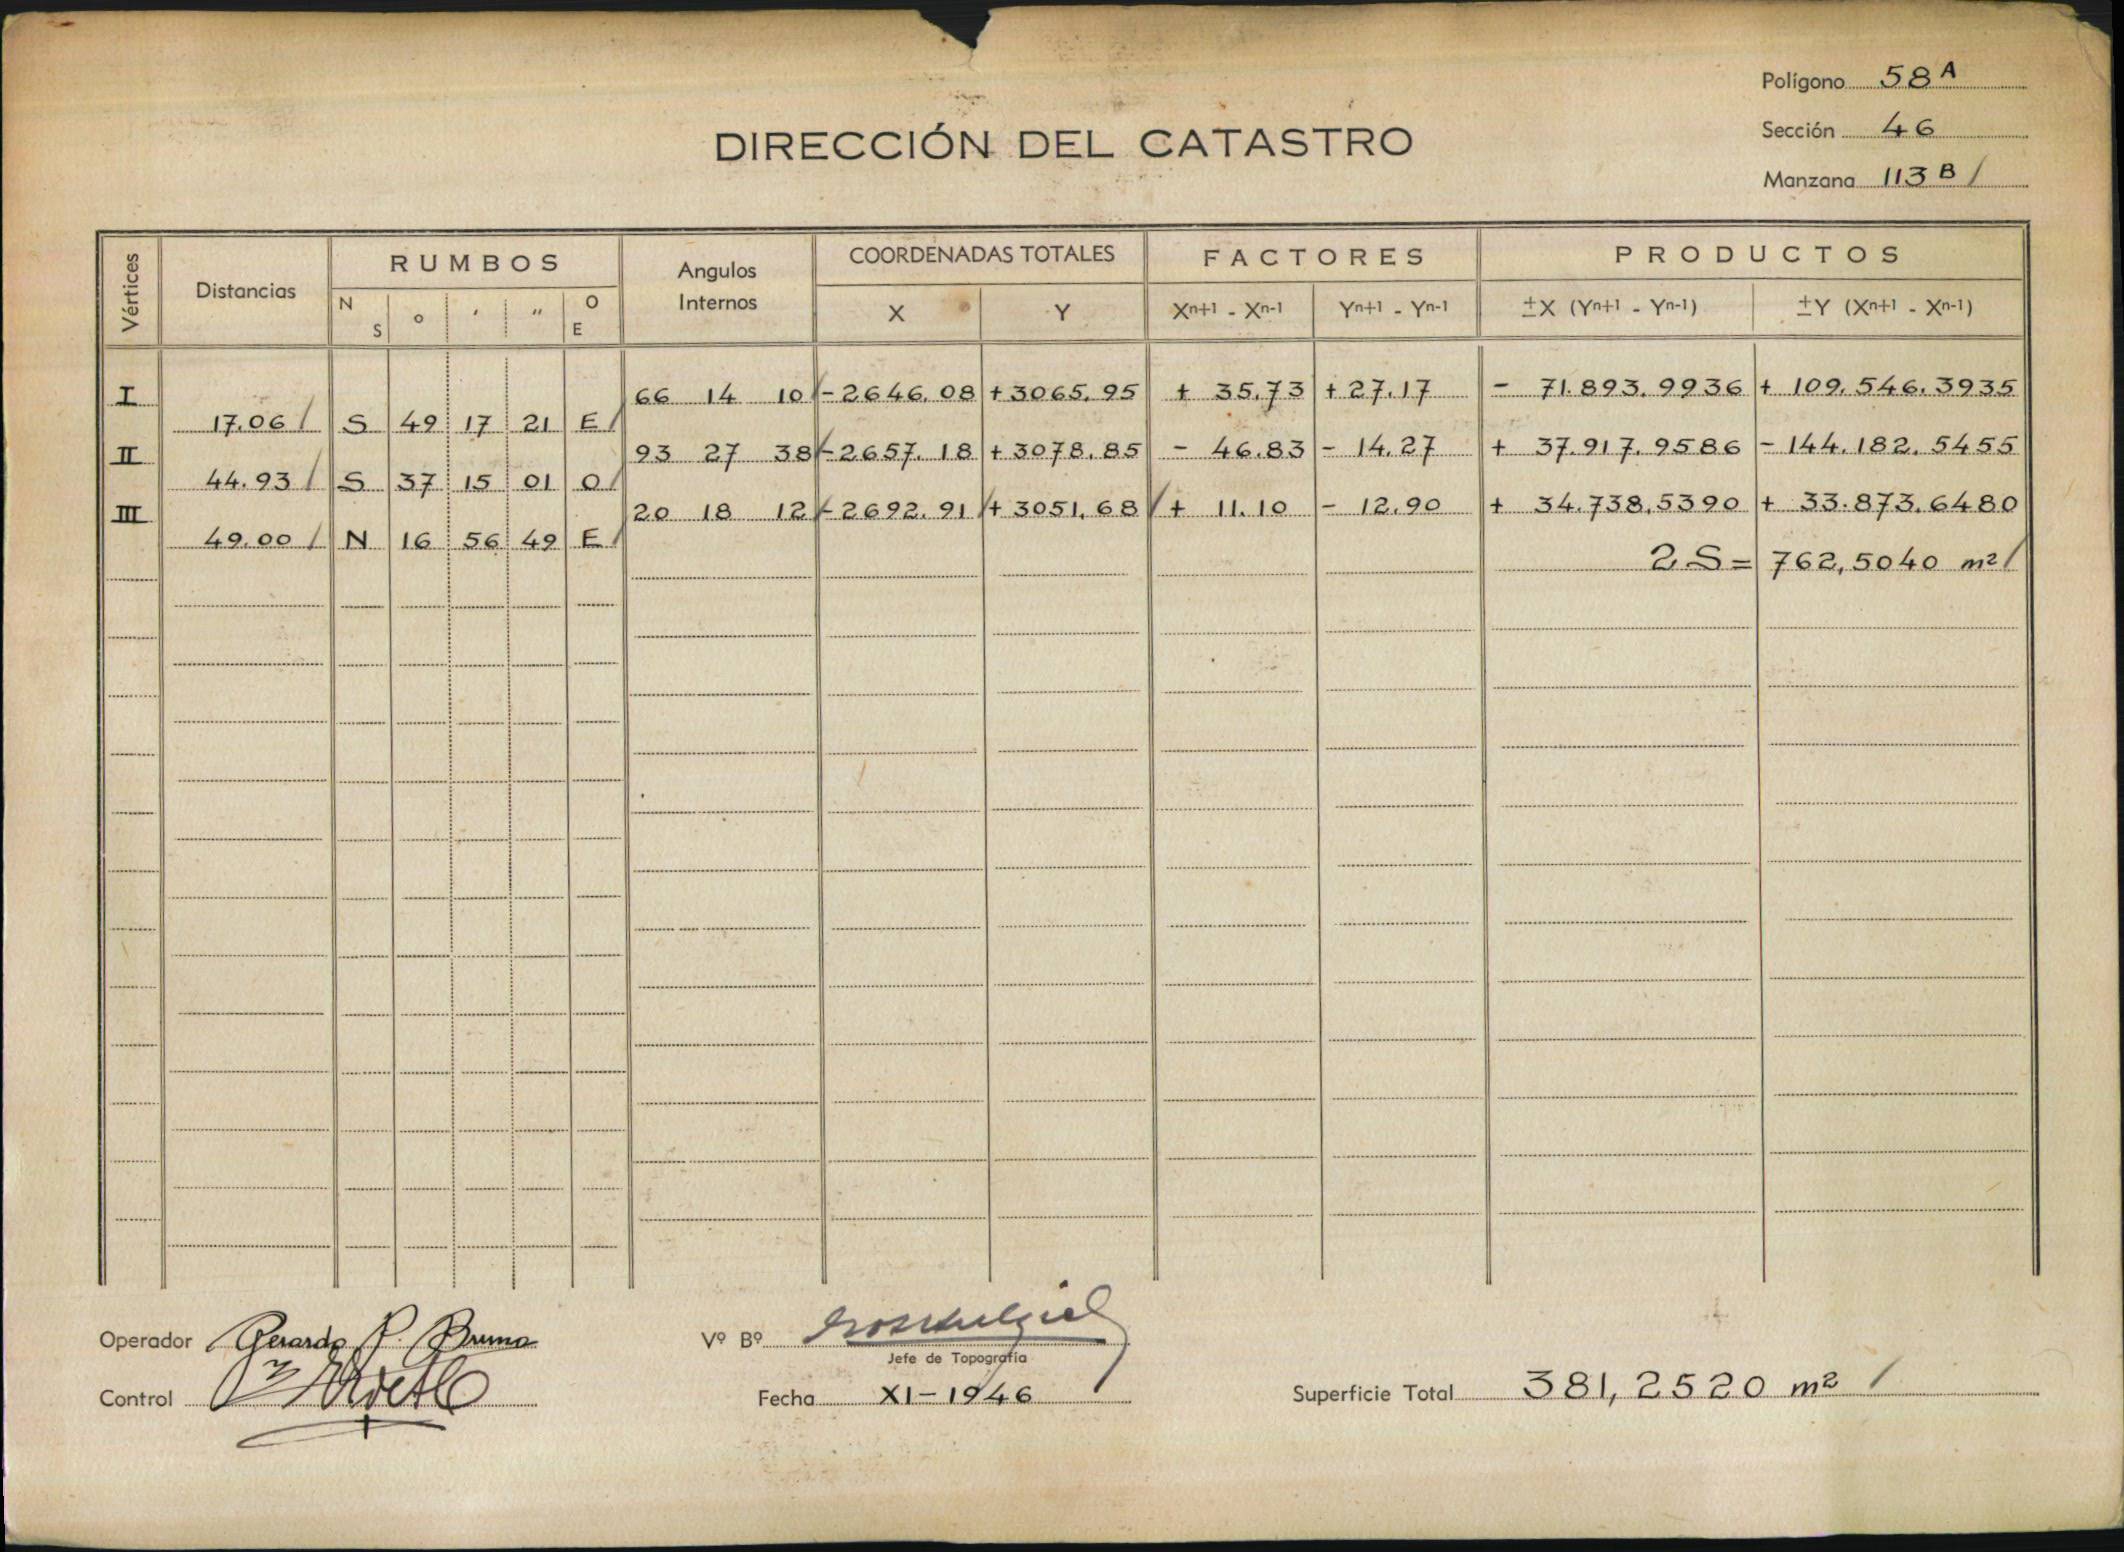 Polígono 58 A
Sección 46
Manzana 113 B /
DIRECCIÓN DEL CATASTRO
Vértices Distancias RUMBOS Angulos Internos COORDENADAS TOTALES FACTORES PRODUCTOS
N S o ' " O E X Y Xn+1 - Xn-1 Yn+1 - Yn-1 ±X (Yn+1 - Yn-1) ±Y (Xn+1 - Xn-1)
I 66 14 10 / - 2646.08 + 3065.95 + 35.73 + 27.17 - 71.893.9936 + 109.546.3935
17.06 / S 49 17 21 E /
II 93 27 38 / - 2657.18 + 3078.85 - 46.83 - 14.27 + 37.917.9586 - 144.182.5455
44.93 / S 37 15 01 O /
III 20 18 12 / - 2692.91 / + 3051.68 / + 11.10 - 12.90 + 34.738.5390 + 33.873.6480
49.00 / N 16 56 49 E /
2S = 762,5040 m² /
Operador Gerardo P. Bruno
Vº Bº
Jefe de Topografía
Control
Fecha XI-1946
Superficie Total 381,2520 m² /